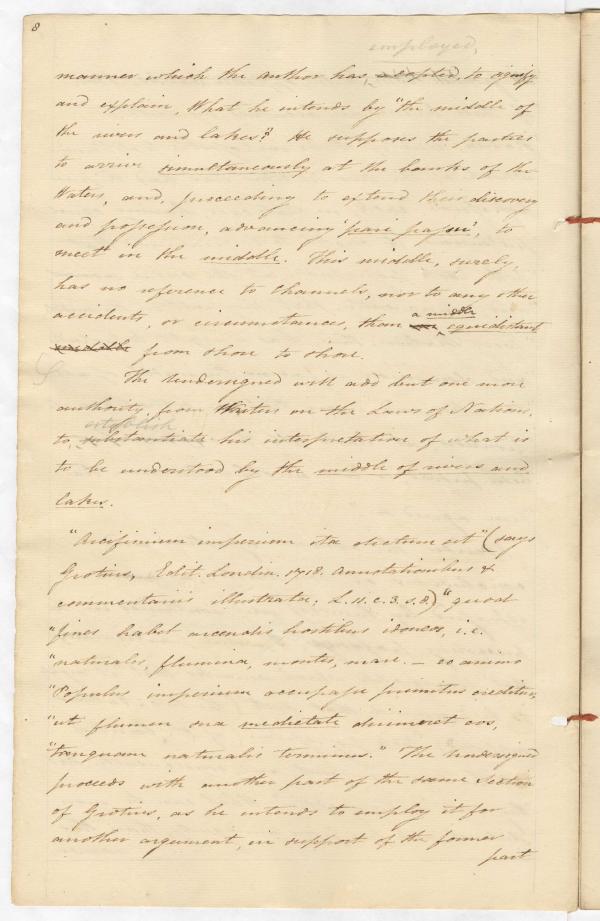 8
employed,
manner which the author has, adopted, to signify
and explain, What he intends by "the middle of
the rivers and lakes"! He supposes the parties
to arrive simultaneously at the banks of the
Waters, and, proceeding to extend their discovery
and possession, advancing 'pari passu', to
meet in the middle. This middle, surely,
has no reference to Channels, nor to any other
a middle
accidents, or circumstances, than equidistant
middle from shore to shore.
The Undersigned will add but one more
authority, from Writers on the Laws of Nations,
establish
to, substantiate his interpretation of what is
to be understood by the middle of rivers and
lakes.
"Arcifinium imperium ita dictum sit" (says
Grotius, Edit. Londin. 1718. Annotationibus &
commentariis illustrata: L. 11. c. 3. s. 8.) "quod
"fines habet arcendis hostibus idoneos, i.e.
"naturales, flumina, montes, mare. — eo animo
"Populus imperium occupasse primitus creditur,
"ut flumen sua medietate dirimeret eos,
"tanquam naturalis terminus." The Undersigned
proceeds with another part of the same Section
of Grotius, as he intends to employ it for
another argument, in support of the former
part